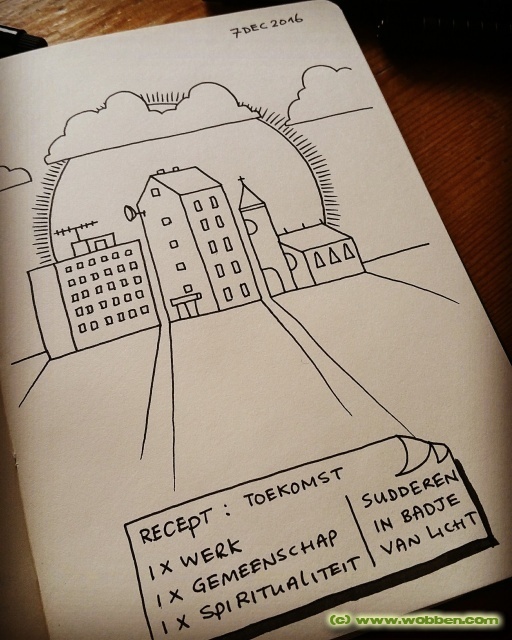 7 DEC 2016
RECEPT : TOEKOMST
1 X WERK
1 X GEMEENSCHAP
1 X SPIRITUALITEIT
SUDDEREN
IN BADJE
VAN LICHT
(c) www.wobben.com